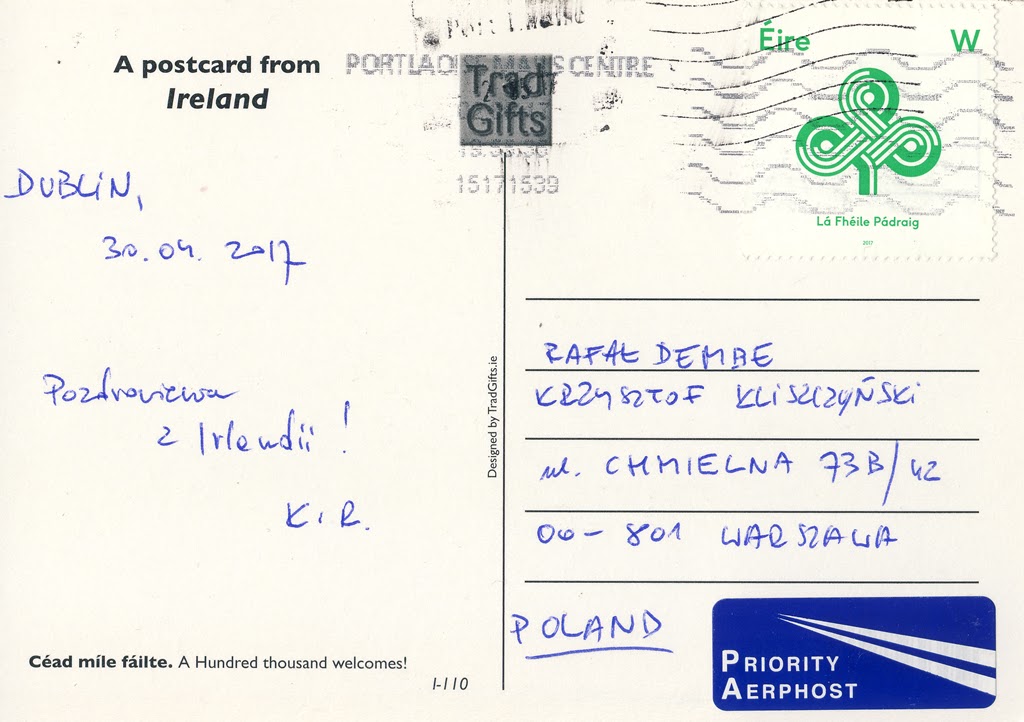 A postcard from
Ireland
PORTLAOISE MAILS CENTRE
Trad
Gifts
15171539
Éire
W
Lá Fhéile Pádraig
2017
DUBLIN,
30.04.2017
Pozdrowienia
z Irlandii!
K i R.
Designed by TradGifts.ie
RAFAŁ DEMBE
KRZYSZTOF KLISZCZYŃSKI
ul. CHMIELNA 73B/42
00-801 WARSZAWA
POLAND
PRIORITY
AERPHOST
Céad míle fáilte. A Hundred thousand welcomes!
I-110